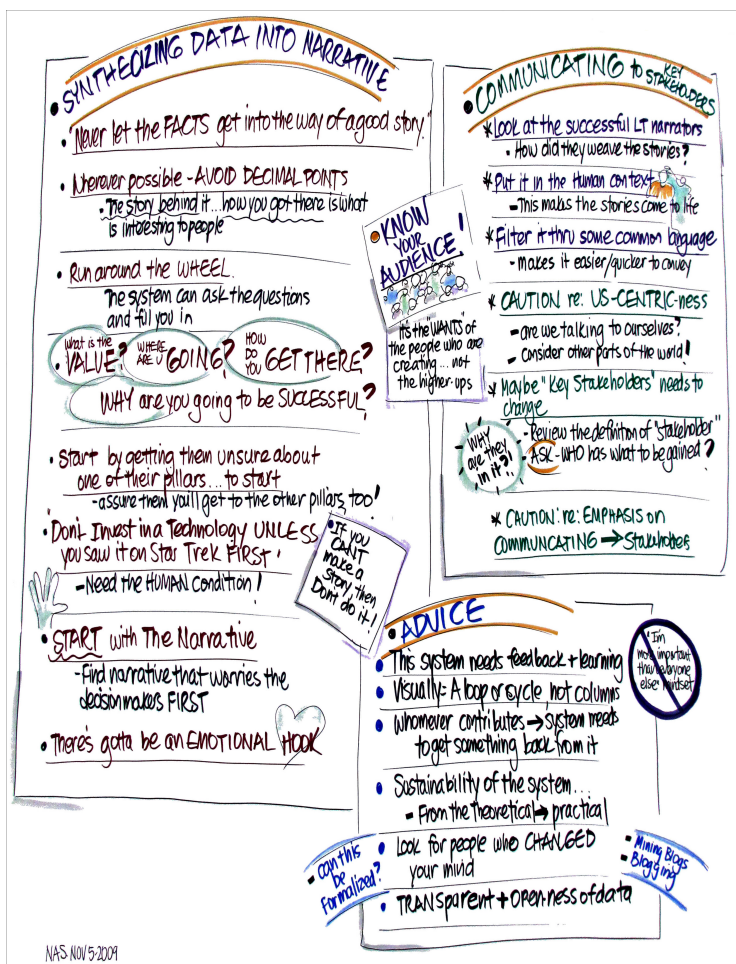 • SYNTHECIZING DATA INTO NARRATIVE
• "Never let the FACTS get into the way of a good story."
• Wherever possible - AVOID DECIMAL POINTS
• The story behind it... how you got there is what
is interesting to people
• Run around the WHEEL.
The system can ask the questions
and fill you in
• What is the VALUE? WHERE ARE U GOING? HOW DO YOU GET THERE?
WHY are you going to be SUCCESSFUL?
• Start by getting them unsure about
one of their pillars... to start
- assure them you'll get to the other pillars, too!
• Don't Invest in a Technology UNLESS
you saw it on Star Trek FIRST!
- Need the HUMAN Condition!
• START with The Narrative
- Find narrative that worries the
decision makers FIRST
• There's gotta be an EMOTIONAL HOOK
• If you
CAN'T
make a
story, then
Don't do it!
• KNOW
YOUR
AUDIENCE!
It's the "WANTS" of
the people who are
creating... not
the higher-ups
• COMMUNICATING to KEY STAKEHOLDERS
* Look at the successful LT narrators
• How did they weave the stories?
* Put it in the Human context
- This makes the stories come to life
* Filter it thru some common language
- makes it easier/quicker to convey
* CAUTION re: US-CENTRIC-ness
- are we talking to ourselves?
- Consider other parts of the world!
* Maybe "Key Stakeholders" needs to
change
- Review the definition of "stakeholder"
- ASK - WHO has what to be gained?
WHY
are they
in it?!
* CAUTION: re: EMPHASIS on
COMMUNCATING → Stakeholders
• ADVICE
• This system needs feedback + learning
• Visually: A loop or cycle, not columns
• Whomever contributes → system needs
to get something back from it
• Sustainability of the system...
- From the theoretical → practical
• Look for people who CHANGED
your mind
• TRANSparent + OPEN-ness of data
"I'm
more important
than everyone
else" mindset
- Can this
be
Formalized?
- Mining Blogs
- Blogging
NAS. NOV 5-2009